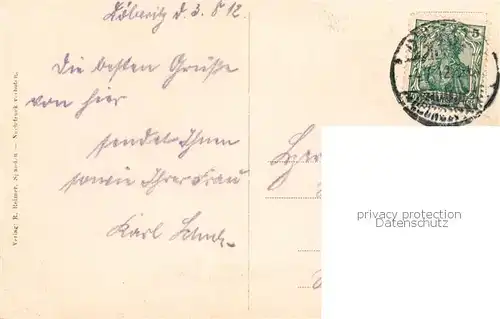 Döberitz d. 3. 8 12.
Die besten Grüße
von hier
sendet Ihnen
sowie Ihrer Frau
Karl
Verlag R. Reimer, — Nachdruck verboten.
5 5
privacy protection
Datenschutz